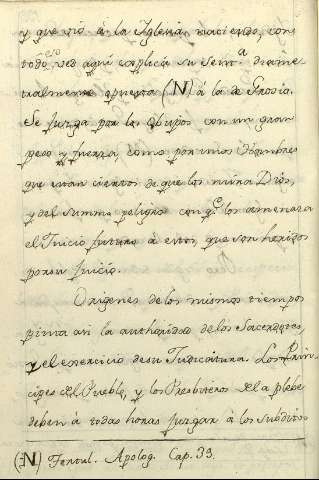 y que vió á la Iglesia naciendo, con
todo eso, ved aquí explica su sent.ª diame
tralmente opuesta (N) á la de Grosio.
Se juzga por los obispos con un gran
peso y fuerza, como por unos hombres
que estan ciertos de que los mira Dios,
y del summo peligro con q.e los amenaza
el Juicio futuro á estos, que son heridos
por su juicio.
Origenes de los mismos tiempos
pinta asi la authoridad de los Sacerdotes,
y el exercicio de su Judicatura. Los Prin-
cipes del Pueblo, y los Presbiteros de la plebe
deben á todas horas juzgar á los subditos
(N) Tertul. Apolog. Cap. 39.